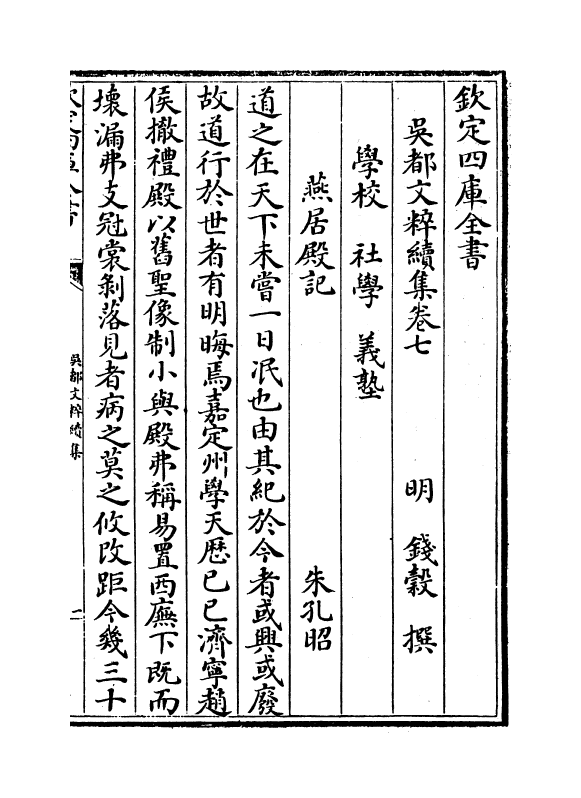 欽定四庫全書
吳都文粹續集卷七 明 錢穀 撰
學校 社學 義塾
燕居殿記 朱孔昭
道之在天下未嘗一日泯也由其紀於今者或興或廢
故道行於世者有明晦焉嘉定州學天歷己巳濟寧趙
侯撤禮殿以舊聖像制小與殿弗稱易置西廡下既而
壞漏弗支冠裳剝落見者病之莫之攸改距今幾三十
欽定四庫全書
吳都文粹續集
二